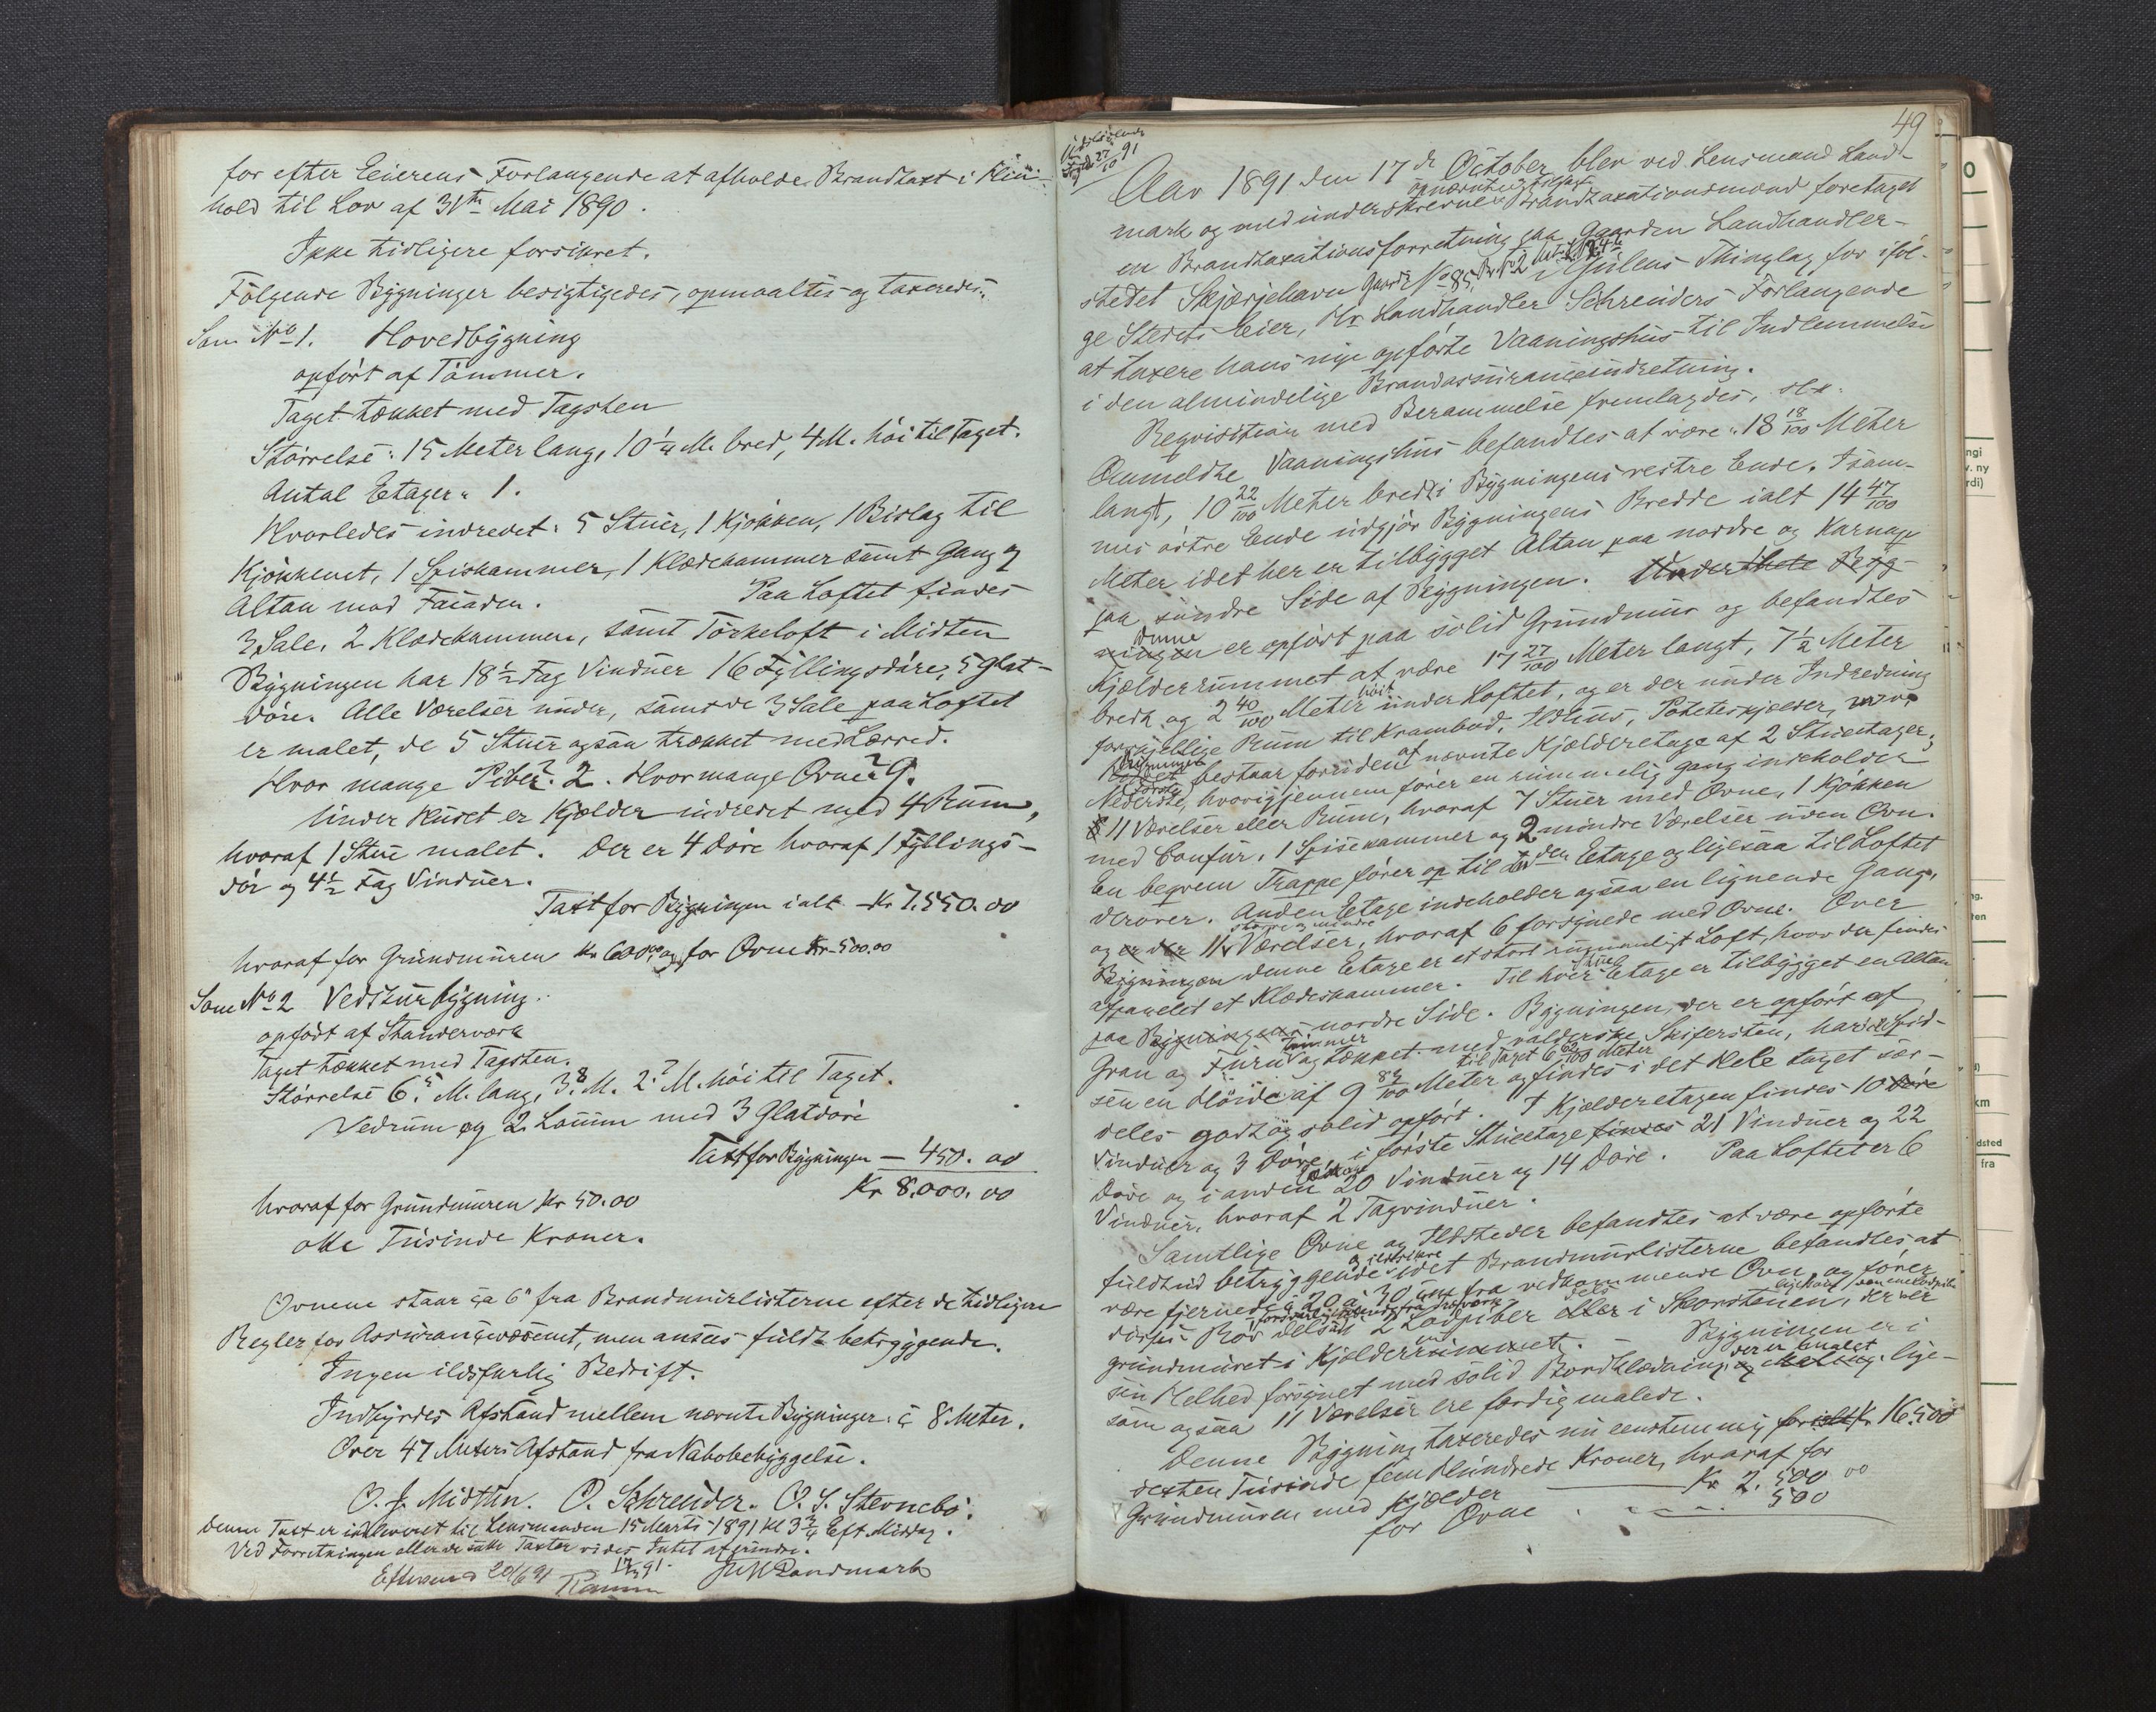 for efter Eierens Forlangende at afholde Brandtaxt i Hen-
hold til Lov af 31te Mai 1890.
Ikke tidligere forsikret.
Følgende Bygninger besigtigedes, opmaaltes og taxeredes:
Som No 1. Hovedbygning
opført af Tømmer.
Taget tækket med Tagsten
Størrelse: 15 Meter lang, 10 1/4 M. bred, 4 M. høi til Taget.
Antal Etager: 1.
Hvorledes indredet: 5 Stuer, 1 Kjøkken, 1 Bislag til
Kjøkkenet, 1 Spiskammer, 1 Klædekammer samt Gang og
Altan mod Facaden. Paa Loftet findes
3 Sale, 2 Klædekammere, samt Tørkeloft i Midten
Bygningen har 18 1/2 Fag Vinduer 16 Fyllingsdøre, 5 glat-
døre. Alle Værelser under, samt de 3 Sale paa Loftet
er malet, de 5 Stuer ogsaa trækket med Lærred.
Hvor mange Piber? 2. Hvor mange Ovne? 9.
Under Huset er Kjælder indredet med 4 Rum,
hvoraf 1 Stue malet. Der er 4 Døre hvoraf 1 Fyllings-
dør og 4 1/2 Fag Vinduer.
Taxt for Bygningen ialt - Kr 7.550.00
hvoraf for Grundmuren Kr 600.00 og for Ovne Kr 500.00
Som No 2 Vedsturbygning.
opført af Standerværk
Taget tækket med Tagsten.
Størrelse 6.5 M. lang, 3.8 M. 2.7 M. høi til Taget.
Vedrum og 2 Lorum med 3 Glatdøre
Taxt for Bygningen — 450.00
Kr 8.000.00
hvoraf for Grundmuren Kr 50.00
otte Tusinde Kroner.
Ovnene staar ca 6" fra Brandmurlisterne efter de tidligere
Regler for Assurancevæsenet, men ansees fuldt betryggende.
Ingen ildsfarlig Bedrift.
Indbyrdes Afstand mellem nævnte Bygninger: c 8 Meter.
Over 47 Meters Afstand fra Nabobebyggelse.
O. J. Midttun. O. Schreuder. O. S. Stevnebø.
Denne Taxt er indleveret til Lensmanden 15 Marts 1891 kl 3 3/4 Eft. Middag.
Ved Forretningen eller de satte Taxter vides Intet at erindre.
17/3 91. Landmark
20/6 91
49
27/10 91
Aar 1891 den 17de October blev ved Lensmand Land-
mark og med underskrevne opnævnte Brandtaxationsmænd foretaget
en Brandtaxationsforretning paa Gaarden Landhandler-
stedet Skjærjehavn Gaards No 85, Br. No 2 i Gulens Thinglag for iføl-
ge Stedets Eier, Hr. Landhandler Schreuders Forlangende
at taxere hans nye opførte Vaaningshus til Indlemmelse
i den almindelige Brandassuranceindretning.
Reqvisition med Berammelse fremlagdes,
Anmeldte Vaaningshus befandtes at være: 18 18/100 Meter
langt, 10 22/100 Meter bredt i Bygningens vestre Ende. I sam-
mes østre Ende udgjør Bygningens Bredde ialt 14 47/100
Meter idet her er tilbygget Altan paa nordre og Karnap
paa søndre Side af Bygningen. Under thete Byg-
ningen denne er opført paa solid Grundmur og befandtes
Kjælderrummet at være 17 27/100 Meter langt, 7 1/2 Meter
bredt og 2 40/100 Meter høit under Loftet, og er der under Indredning
forskjellige Rum til Krambod, Ildhus, Poteteskjelder, m.v.
Bygningen bestaar foruden af nævnte Kjælderetage af 2 Stueetager;
Nederste, første hvorigjennem fører en rummelig Gang indeholder
11 Værelser eller Rum, hvoraf 7 Stuer med Ovne, 1 Kjøkken
med Comfur, 1 Spisekammer og 2 mindre Værelser uden Ovn.
En beqvem Trappe fører op til anden Etage og ligesaa til Loftet
derover. Anden Etage indeholder ogsaa en lignende Gang,
og er der 11 større og mindre Værelser, hvoraf 6 forsynede med Ovne. Over
Bygningen denne Etage er et stort rummeligt Loft, hvor der findes
afpanelet et Klædeskammer. Til hver Stue Etage er tilbygget en Altan
paa Bygningens nordre Side. Bygningen, der er opført af
Gran og Furutømmer og tækket med valderske Skifersten, har i Spid-
sen en Høide af 9 89/100 Meter til Taget 6 62/100 Meter og findes i det Hele taget sær-
deles godt og solid opført. I Kjælderetagen findes 10 Døre
Vinduer og 3 Døre, i første Stueetage findes 21 Vinduer og 22
Døre og i anden Etage 20 Vinduer og 14 Døre. Paa Loftet er 6
Vinduer, hvoraf 2 Tagvinduer.
Samtlige Ovne og Ildsteder befandtes at være opførte
fuldtud betryggende og ildsikre idet Brandmurlisterne befandtes at
være fjernede 20 à 30 cm fra vedkommende Ovn, og fører
disses Rør dels i 2 Lodpiber dels i Skorstenen, der er
grundmuret i Kjælderrummet. Bygningen er i
sin Helhed forsynet med solid Bordklædning der er malet og Maling, lige-
som ogsaa 11 Værelser ere færdig malede.
Denne Bygning taxeredes nu eenstemmig for ialt Kr. 16.500
sexten Tusinde fem Hundrede Kroner, hvoraf for
Grundmuren med Kjælder — Kr 2.500 00
for Ovne - - - 500